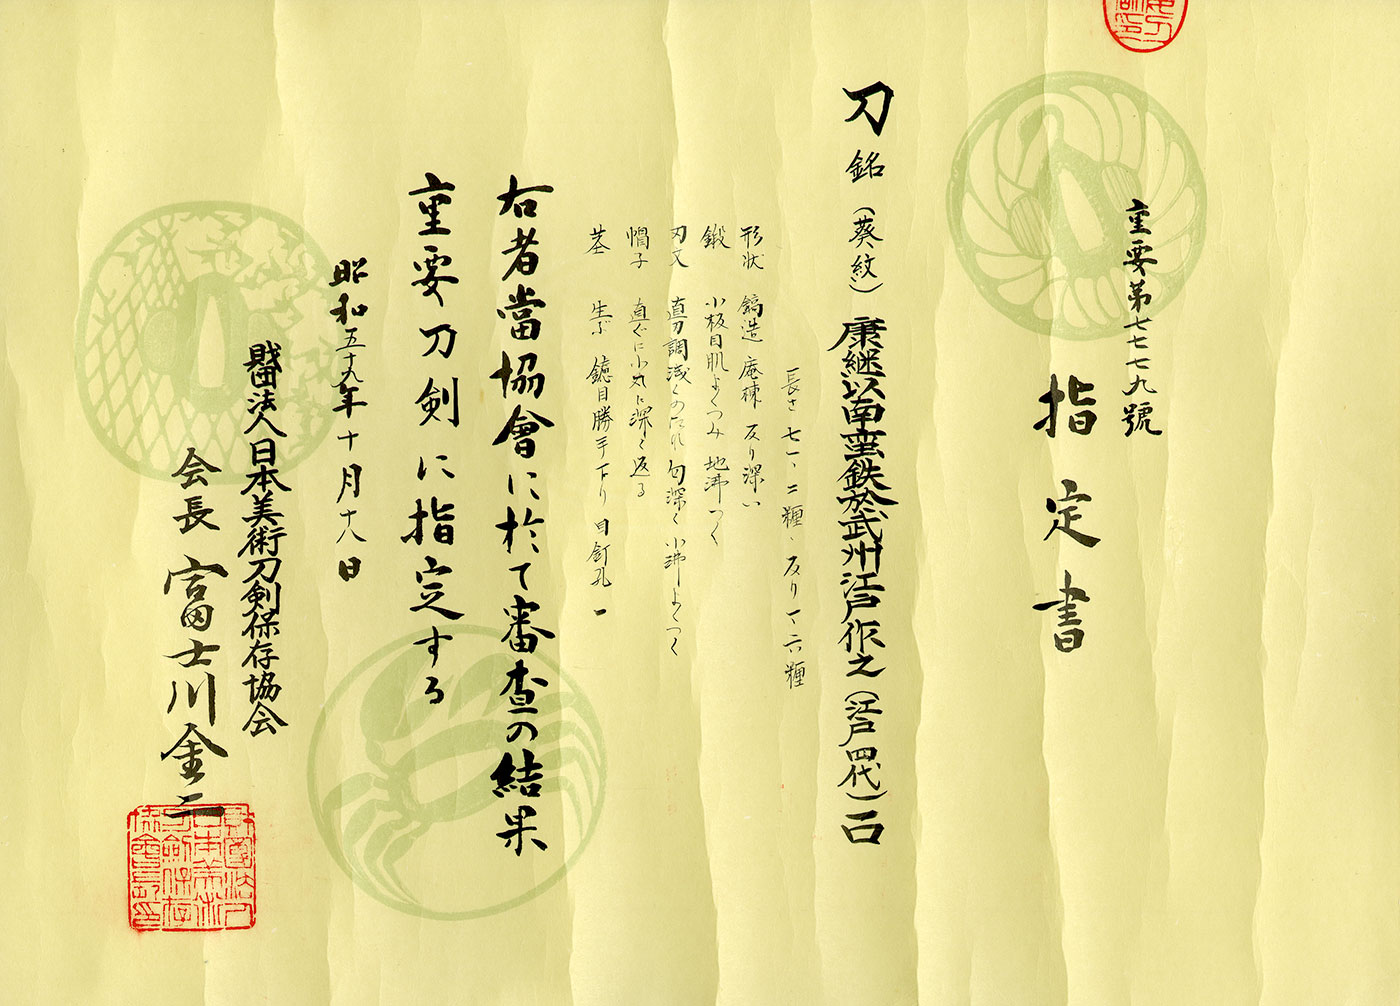 重要第七七七九號
指定書
刀 銘(葵紋)康継以南蛮鉄於武州江戸作之(江戸四代)一口
長さ 七一、二糎、反り 一、六糎
形状 鎬造 庵棟 反り深い
鍛 小板目肌よくつみ 地沸つく
刃文 直刃調浅くのたれ 匂深く 小沸よくつく
帽子 直ぐに小丸に深く返る
茎 生ぶ 鑢目勝手下り 目釘孔一
右者當協會に於て審査の結果
重要刀剣に指定する
昭和五十九年十月十八日
財団法人日本美術刀剣保存協会
会長 富士川金二